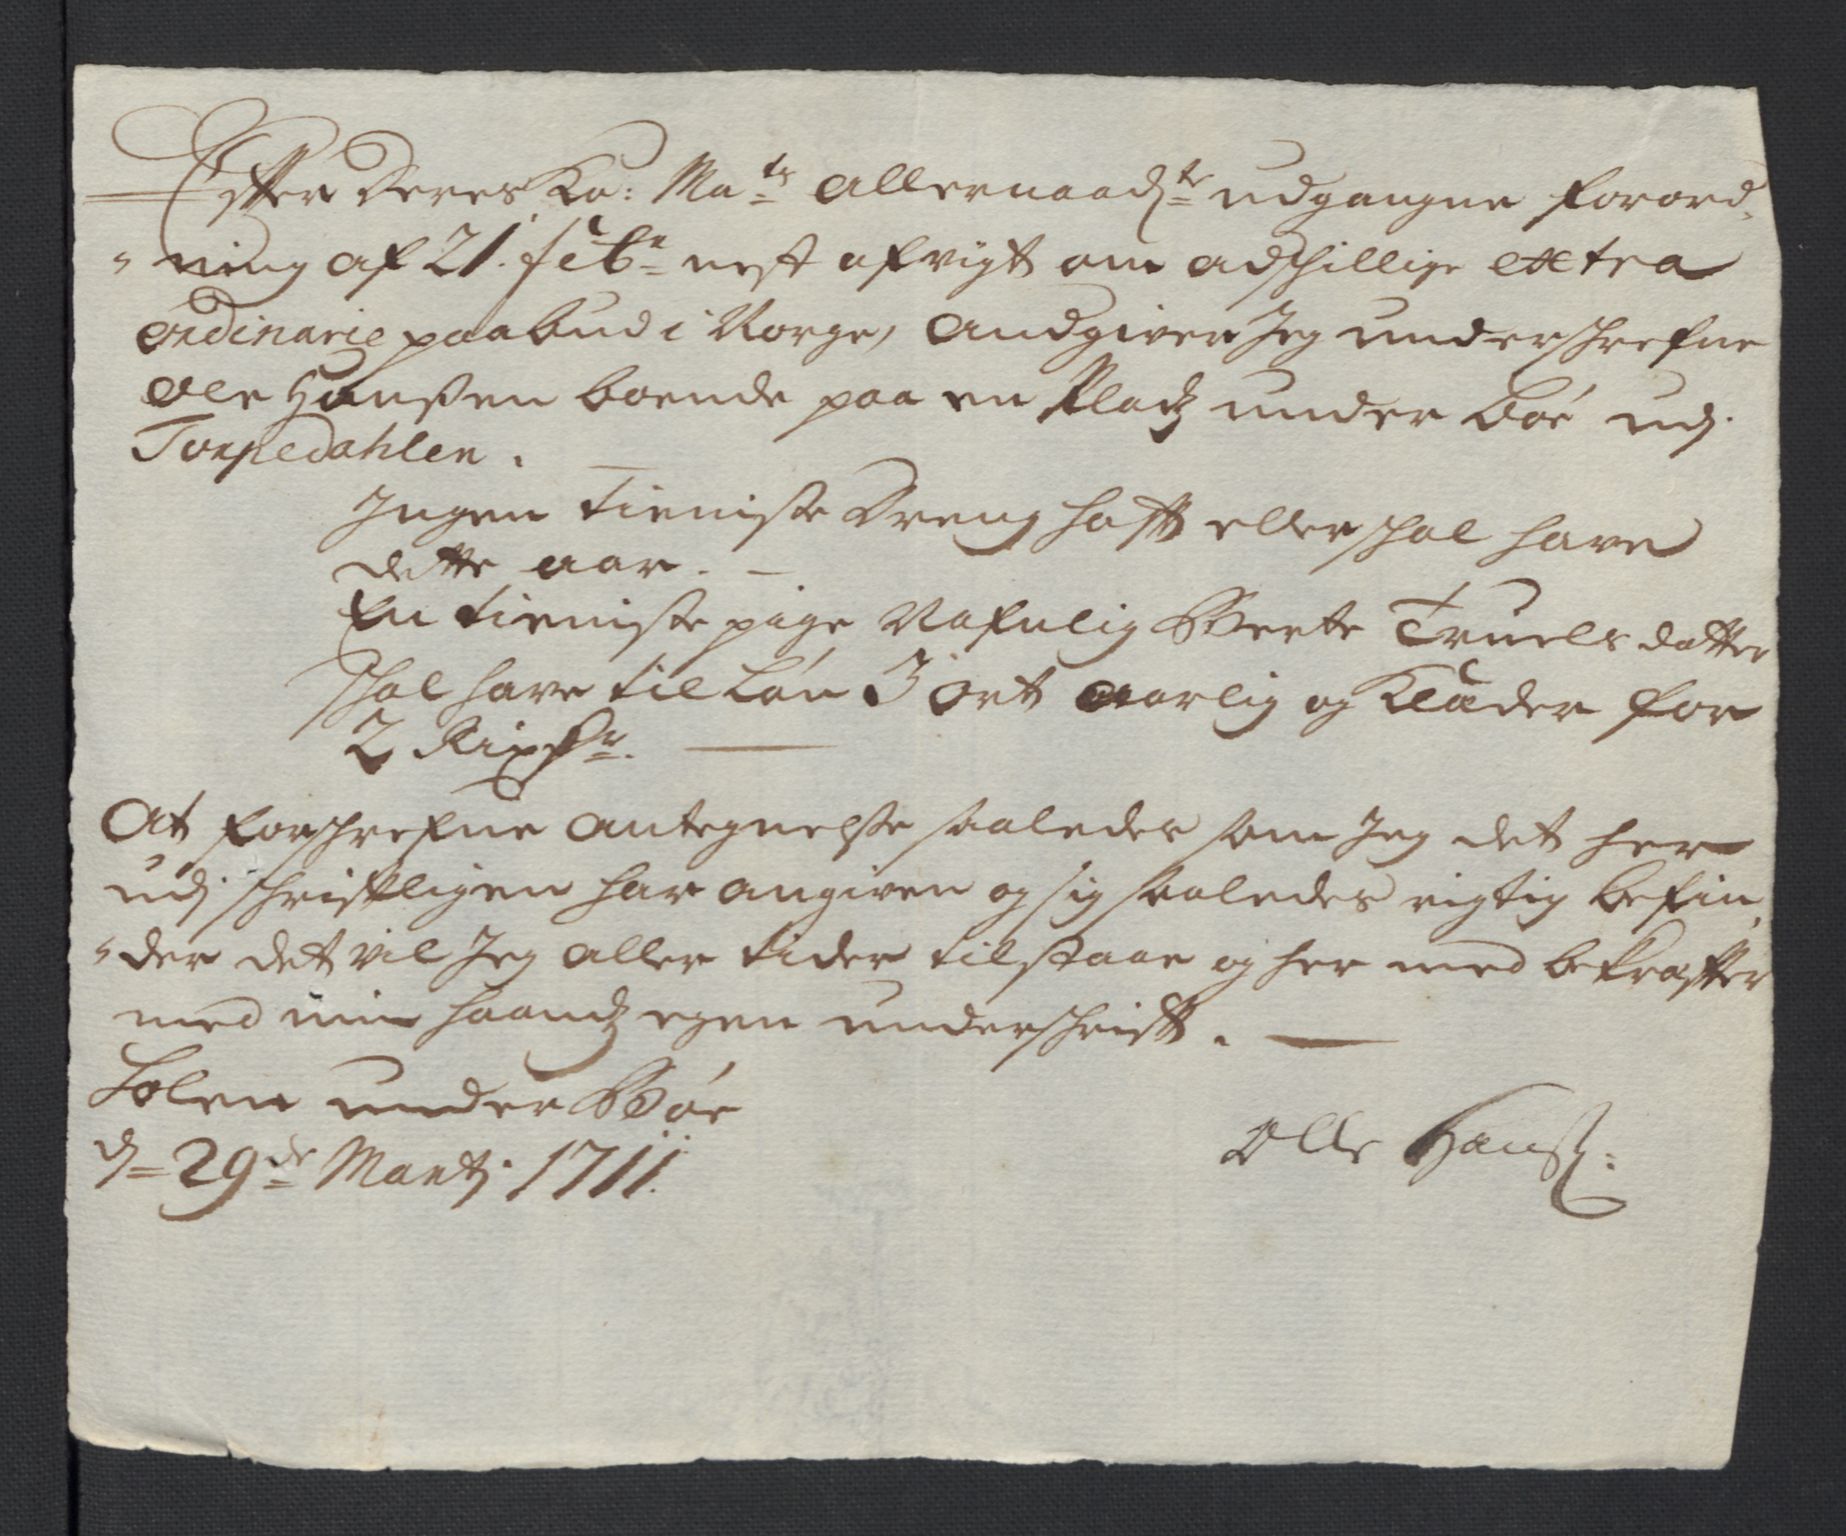 Efter Deres Ko: Ma:ts Allernaadste udgangne Forord„
„ning af 21. Febr: nest afvigt om adschillige extra
ordinarie paabud i Norge, Andgiver Jeg underschrefne
Ole Hanßen boende paa en Pladz under Böe udj
Torpedahlen.
Ingen Tieniste Dreng hafft eller schal have
dette aar. —
En tieniste pige Nafnlig Berte Truels datter
schal have til Lön 3 ort aarlig og Klæder for
2 Rixdr. —
At forschrefne Antegnelße saaledes som Jeg det her
udj schriftligen har angiven og sig saaledes rigtig befin„
„der det vil Jeg aller tider tilstaae og her med bekræffter
med min haandz egen underschrifft. —
Lolen under Böe
d= 29de Martj 1711.
Olle Hanß: